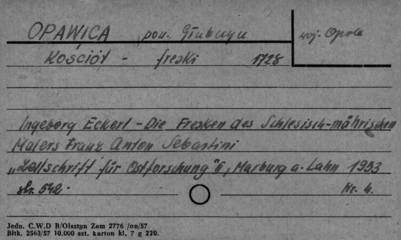 OPAWICA pow. Głubczyce
woj. Opole
Kościół - freski 1728
Ingeborg Eckert - Die Fresken des Schlesisch-mährischen
Malers Franz Anton Sebastini
"Zeitschrift für Ostforschung" 6, Marburg a. Lahn 1953
str. 542. Nr. 4.
Jedn. C.W.D R/Olsztyn Zam 2776
Błtk. 2563/57 10.000 szt. karton kl. 7 g 220.